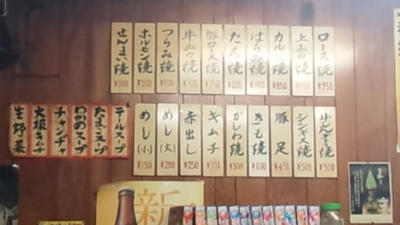 ロース焼 ¥950
上みの焼
カルビ焼 ¥850
はらみ焼
たん焼
豚ロース焼
牛みの焼
つらみ焼 ¥950
ホルモン焼 ¥500
せんまい焼 ¥500
ジンギス焼 ¥500
豚足 ¥450
きも焼 ¥600
かしわ焼 ¥500
キムチ ¥350
赤出し ¥250
めし(大) ¥200
めし(小) ¥150
テールスープ
たまごスープ
わかめスープ
チャンヂャ
大根キムチ
生野菜
新